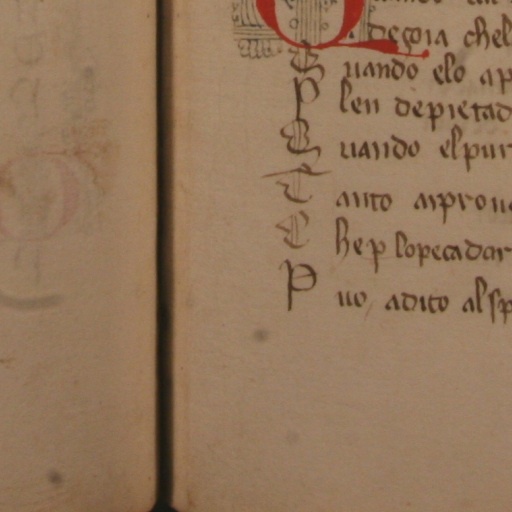 degoia chel
Quando elo ap
Plen de pietad
Quando elpur
Tanto aiprou
Che p lopecadar
Puo adito alsp